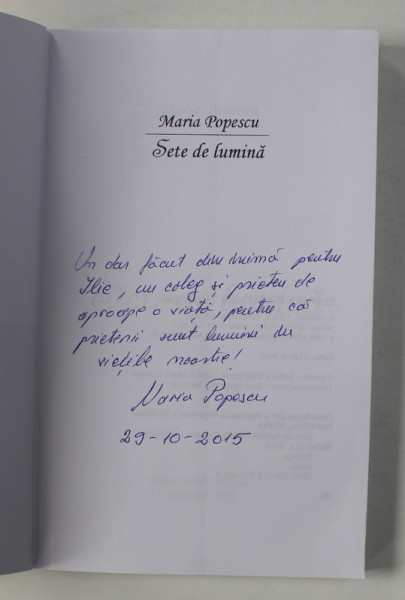 Maria Popescu
Sete de lumină
Un dar făcut din inimă pentru
Ilie, un coleg și prieten de
aproape o viață, pentru că
prietenii sunt lumini în
viețile noastre!
Maria Popescu
29-10-2015